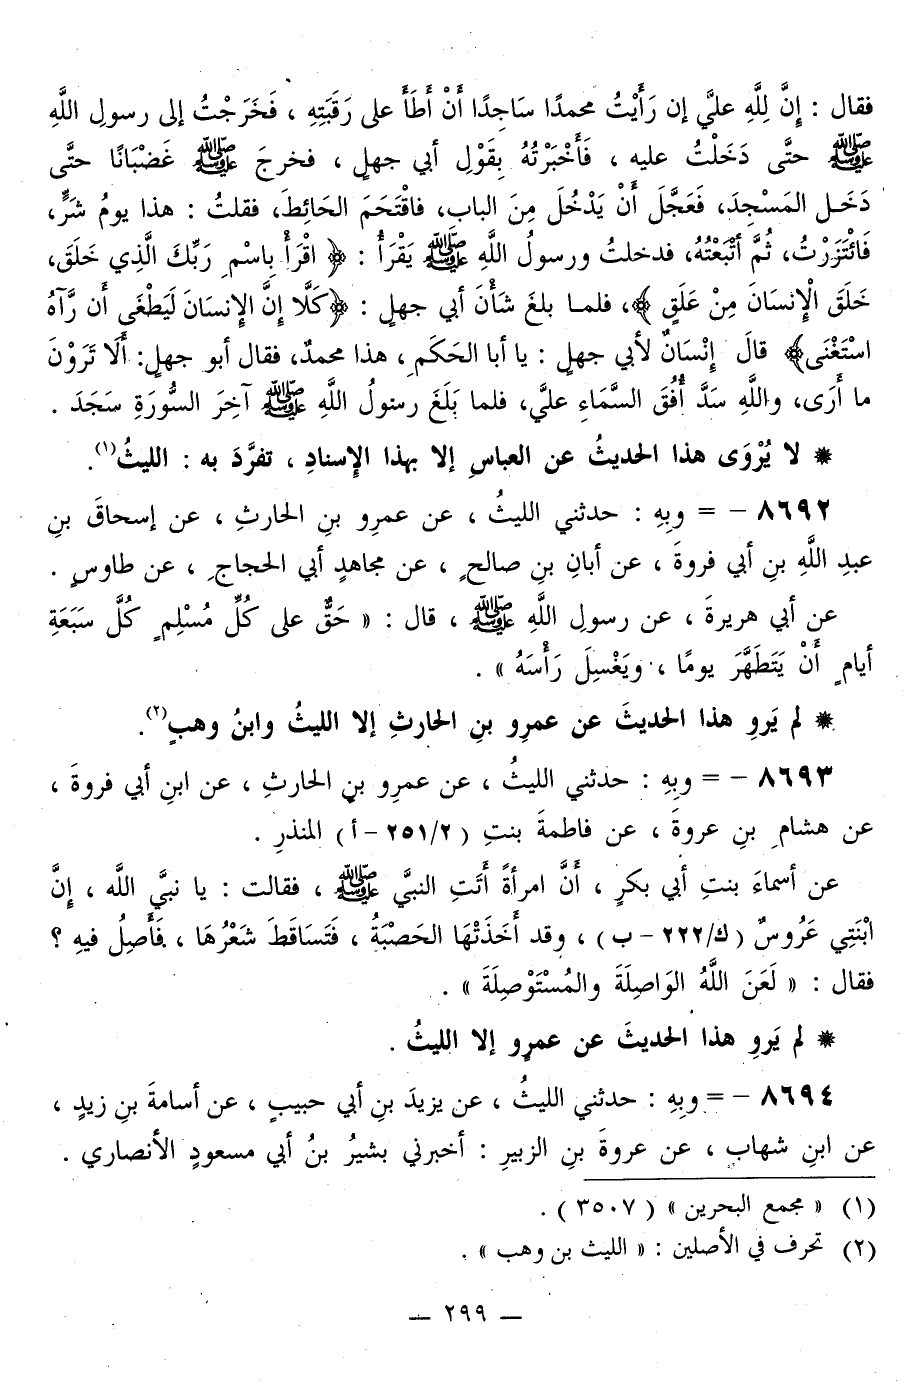 فقال : إِنَّ لِلَّهِ عليَّ إن رَأَيْتُ محمدًا سَاجِدًا أَنْ أَطَأَ على رَقَبَتِهِ ، فَخَرَجْتُ إلى رسولِ اللَّهِ
ﷺ حتَّى دَخَلْتُ عليه ، فَأَخْبَرْتُهُ بِقَوْلِ أبي جهلٍ ، فخرجَ ﷺ غَضْبَانًا حتَّى
دَخَـل المَسْجِدَ، فَعَجَّلَ أَنْ يَدْخُلَ مِنَ الباب، فاقْتَحَمَ الحَائطَ، فقلتُ : هذا يومُ شَرٍّ،
فَاتْتَزَرْتُ، ثُمَّ أتْبَعْتُهُ، فدخلتُ ورسولُ اللَّهِ ﷺ يَقْرَأُ : ﴿ اقْرَأْ بِاسْمِ رَبِّكَ الَّذِي خَلَقَ،
خَلَقَ الْإِنسَانَ مِنْ عَلَقٍ ﴾، فلمـا بلغَ شَأْنَ أبي جهلٍ : ﴿كَلَّا إِنَّ الإِنسَانَ لَيَطْغَى أَن رَّآهُ
اسْتَغْنَى﴾ قالَ إنْسَانٌ لأبي جهلٍ : يا أبا الحَكَمِ، هذا محمدٌ، فقال أبو جهلٍ: أَلَا تَرَوْنَ
ما أَرَى، واللَّهِ سَدَّ أُفُقَ السَّمَاءِ عليَّ، فلما بَلَغَ رسولُ اللَّهِ ﷺ آخِرَ السُّورَةِ سَجَدَ .
* لا يُرْوَى هذا الحديثُ عن العباسِ إلا بهذا الإسنادِ ، تفرَّدَ به : الليثُ(١).
٨٦٩٢ - = وبِهِ : حدثني الليثُ ، عن عمرِو بنِ الحارثِ ، عن إسحاقَ بنِ
عبدِ اللَّهِ بنِ أبي فروةَ ، عن أبانِ بنِ صالحٍ ، عن مجاهدٍ أبي الحجاجِ ، عن طاوسٍ .
عن أبي هريرةَ ، عن رسولِ اللَّهِ ﷺ ، قال : « حَقٌّ على كُلِّ مُسْلِمٍ كُلَّ سَبَعَةِ
أيامٍ أَنْ يَتَطَهَّرَ يومًا ، ويَغْسِلَ رَأْسَهُ » .
* لم يَروِ هذا الحديثَ عن عمرِو بنِ الحارثِ إلا الليثُ وابنُ وهبٍ(٢).
٨٦٩٣ - = وبِهِ : حدثني الليثُ ، عن عمرِو بنِ الحارثِ ، عن ابنِ أبي فروةَ ،
عن هشامِ بنِ عروةَ ، عن فاطمةَ بنتِ (٢/٢٥١ - أ) المنذرِ .
عن أسماءَ بنتِ أبي بكرٍ ، أَنَّ امرأةً أَتَتِ النبيَّ ﷺ ، فقالت : يا نبيَّ اللَّه ، إِنَّ
ابْنَتِي عَرُوسٌ (ك/٢٢٢ - ب) ، وقد أَخَذَتْهَا الحَصْبَةُ ، فَتَسَاقَطَ شَعْرُهَا ، فَأَصِلُ فيهِ ؟
فقال : « لَعَنَ اللَّهُ الوَاصِلَةَ والمُسْتَوْصِلَةَ » .
* لم يَروِ هذا الحديثَ عن عمرٍو إلا الليثُ .
٨٦٩٤ - = وبِهِ : حدثني الليثُ ، عن يزيدَ بنِ أبي حبيبٍ ، عن أسامةَ بنِ زيدٍ ،
عن ابنِ شهابٍ ، عن عروةَ بنِ الزبيرِ : أخبرني بشيرُ بنُ أبي مسعودٍ الأنصاري .
(١) « مجمع البحرين » (٣٥٠٧) .
(٢) تحرف في الأصلين : « الليث بن وهب » .
— ٢٩٩ —